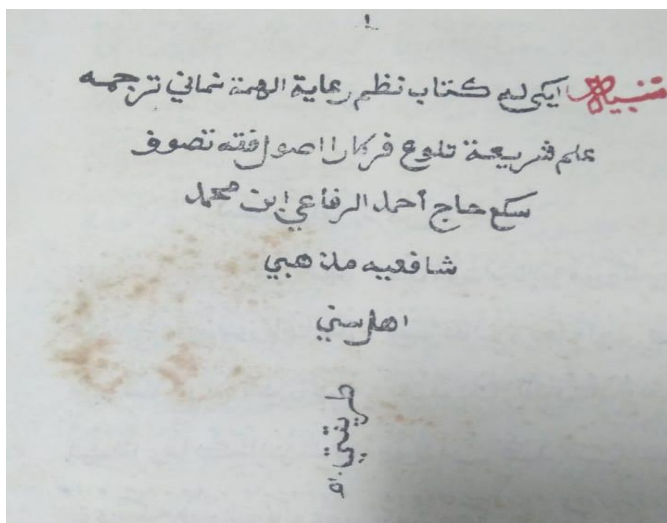 ١
تنبيه ايكي له كتاب نظم رعاية الهمة نماني ترجمه
علم شريعة تلوع فركارا اصول فقه تصوف
سكع حاج أحمد الرفاعي ابن محمد
شافعيه مذهبي
اهل سني
طريقتي